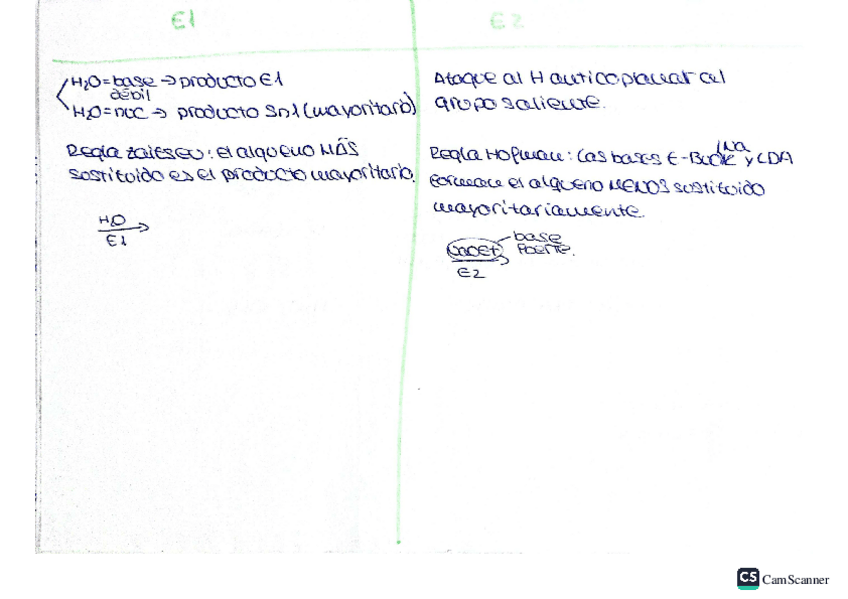 E1
H2O = base → producto E1
débil
H2O = nuc → producto Sn1 (mayoritario)
Regla Zaitsev: el alqueno MÁS
sostituido es el producto mayoritario.
H2O
E1
E2
Ataque al H anticoplanar al
grupo saliente.
Regla Hofman: Las bases t-BuOK/Na y LDA
forman el alqueno MENOS sostituido
mayoritariamente.
NaOEt base
fuerte.
E2
CS CamScanner